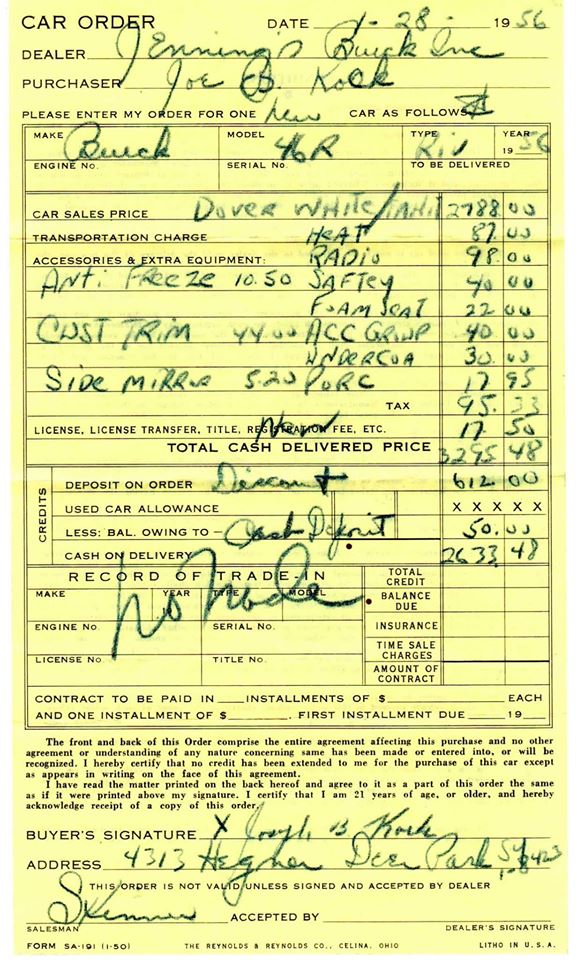 CAR ORDER DATE 1-28- 1956
DEALER Jennings Buick Inc
PURCHASER Joe B. Kock
PLEASE ENTER MY ORDER FOR ONE New CAR AS FOLLOWS
MAKE Buick MODEL 46R TYPE Riv YEAR 1956
ENGINE No. SERIAL No. TO BE DELIVERED
CAR SALES PRICE DOVER WHITE/TAHIT 2788 00
TRANSPORTATION CHARGE HEAT 81 00
ACCESSORIES & EXTRA EQUIPMENT: RADIO 98.00
ANTi FREEZE 10.50 SAFTEY 40 00
FOAM SEAT 22 00
CUST TRIM 44.00 ACC GROUP 40 00
UNDERCOA 30.00
SIDE MIRROR 5.20 PORC 17 95
TAX 95.33
LICENSE, LICENSE TRANSFER, TITLE, REGISTRATION FEE, ETC. New 17 50
TOTAL CASH DELIVERED PRICE 3295 48
CREDITS
DEPOSIT ON ORDER Discount 612 00
USED CAR ALLOWANCE X X X X X
LESS: BAL. OWING TO - Cash Deposit 50.00
CASH ON DELIVERY 2633 48
RECORD OF TRADE-IN TOTAL CREDIT
MAKE YEAR TYPE MODEL BALANCE DUE
No Trade
ENGINE No. SERIAL No. INSURANCE
TIME SALE CHARGES
LICENSE No. TITLE No. AMOUNT OF CONTRACT
CONTRACT TO BE PAID IN ___INSTALLMENTS OF $___ EACH
AND ONE INSTALLMENT OF $___. FIRST INSTALLMENT DUE ___19___
The front and back of this Order comprise the entire agreement affecting this purchase and no other
agreement or understanding of any nature concerning same has been made or entered into, or will be
recognized. I hereby certify that no credit has been extended to me for the purchase of this car except
as appears in writing on the face of this agreement.
I have read the matter printed on the back hereof and agree to it as a part of this order the same
as if it were printed above my signature. I certify that I am 21 years of age, or older, and hereby
acknowledge receipt of a copy of this order.
BUYER'S SIGNATURE X Joseph B Kock
ADDRESS 4313 Hegner Deer Park
THIS ORDER IS NOT VALID UNLESS SIGNED AND ACCEPTED BY DEALER
Skinner ACCEPTED BY
SALESMAN DEALER'S SIGNATURE
FORM SA-191 (1-50) THE REYNOLDS & REYNOLDS CO., CELINA, OHIO LITHO IN U.S.A.